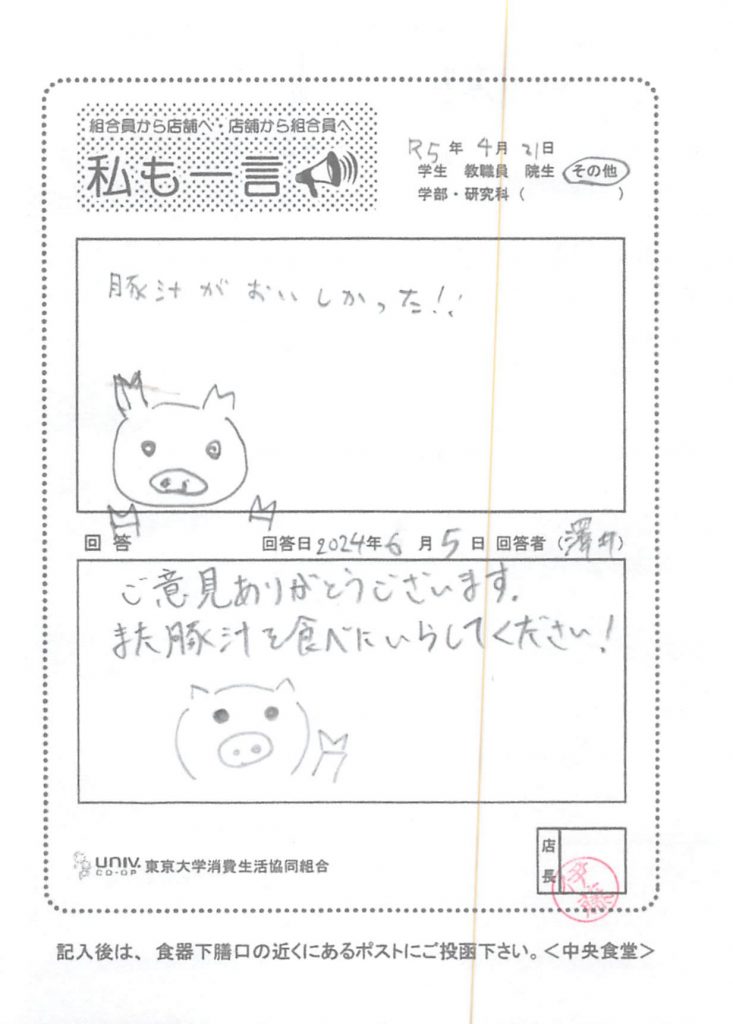 組合員から店舗へ・店舗から組合員へ
私も一言
R5年 4月 21日
学生 教職員 院生 その他
学部・研究科( )
豚汁がおいしかった!!
回答 回答日2024年6月5日 回答者(澤井)
ご意見ありがとうございます。
また豚汁を食べにいらしてください!
UNIV. CO-OP 東京大学消費生活協同組合
店長
伊藤
記入後は、食器下膳口の近くにあるポストにご投函下さい。<中央食堂>